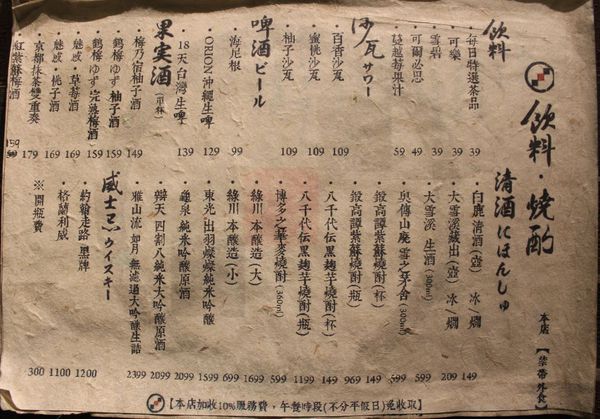 飲料・燒酌
清酒 にほんしゅ
本店【禁帶外食】
飲料
每日特選茶品 39
可樂 39
雪碧 39
可爾必思 49
蔓越莓果汁 59
沙瓦 サワー
百香沙瓦 109
蜜桃沙瓦 109
柚子沙瓦 109
啤酒 ビール
海尼根 99
ORION 沖繩生啤 129
18天台灣生啤 139
果実酒 (一杯)
梅乃宿柚子酒 149
鶴梅ゆず 柚子酒 159
鶴梅ゆず 完熟梅酒 159
魅惑・草莓酒 169
魅惑・桃子酒 169
京都抹茶雙重奏 179
紅紫蘇梅酒 159
・白鹿 清酒(壺) 冰/燗 149
・大雪溪 藏出(壺) 冰/燗 209
・大雪溪 生酒(300ml) 599
・與傳山廢 雪之茅舍(300ml) 599
・鍛高譚紫蘇燒酎(杯) 149
・鍛高譚紫蘇燒酎(瓶) 969
・八千代伝黑麹芋燒酎(杯) 149
・八千代伝黑麹芋燒酎(瓶) 1199
・博多之華麥燒酎(360ml) 599
・綠川 本釀造(大) 1699
・綠川 本釀造(小) 699
・東光出羽燦燦純米吟釀 1599
・龜泉 純米吟釀原酒 2099
・辯天 四割八純米大吟釀原酒 2099
・雅山流 如月 無濾過大吟釀生詰 2399
威士忌 ウイスキー
・約翰走路 黑牌 1200
・格蘭利威 1100
※開瓶費 300
【本店加收10%服務費，午餐時段(不分平假日)免收取】